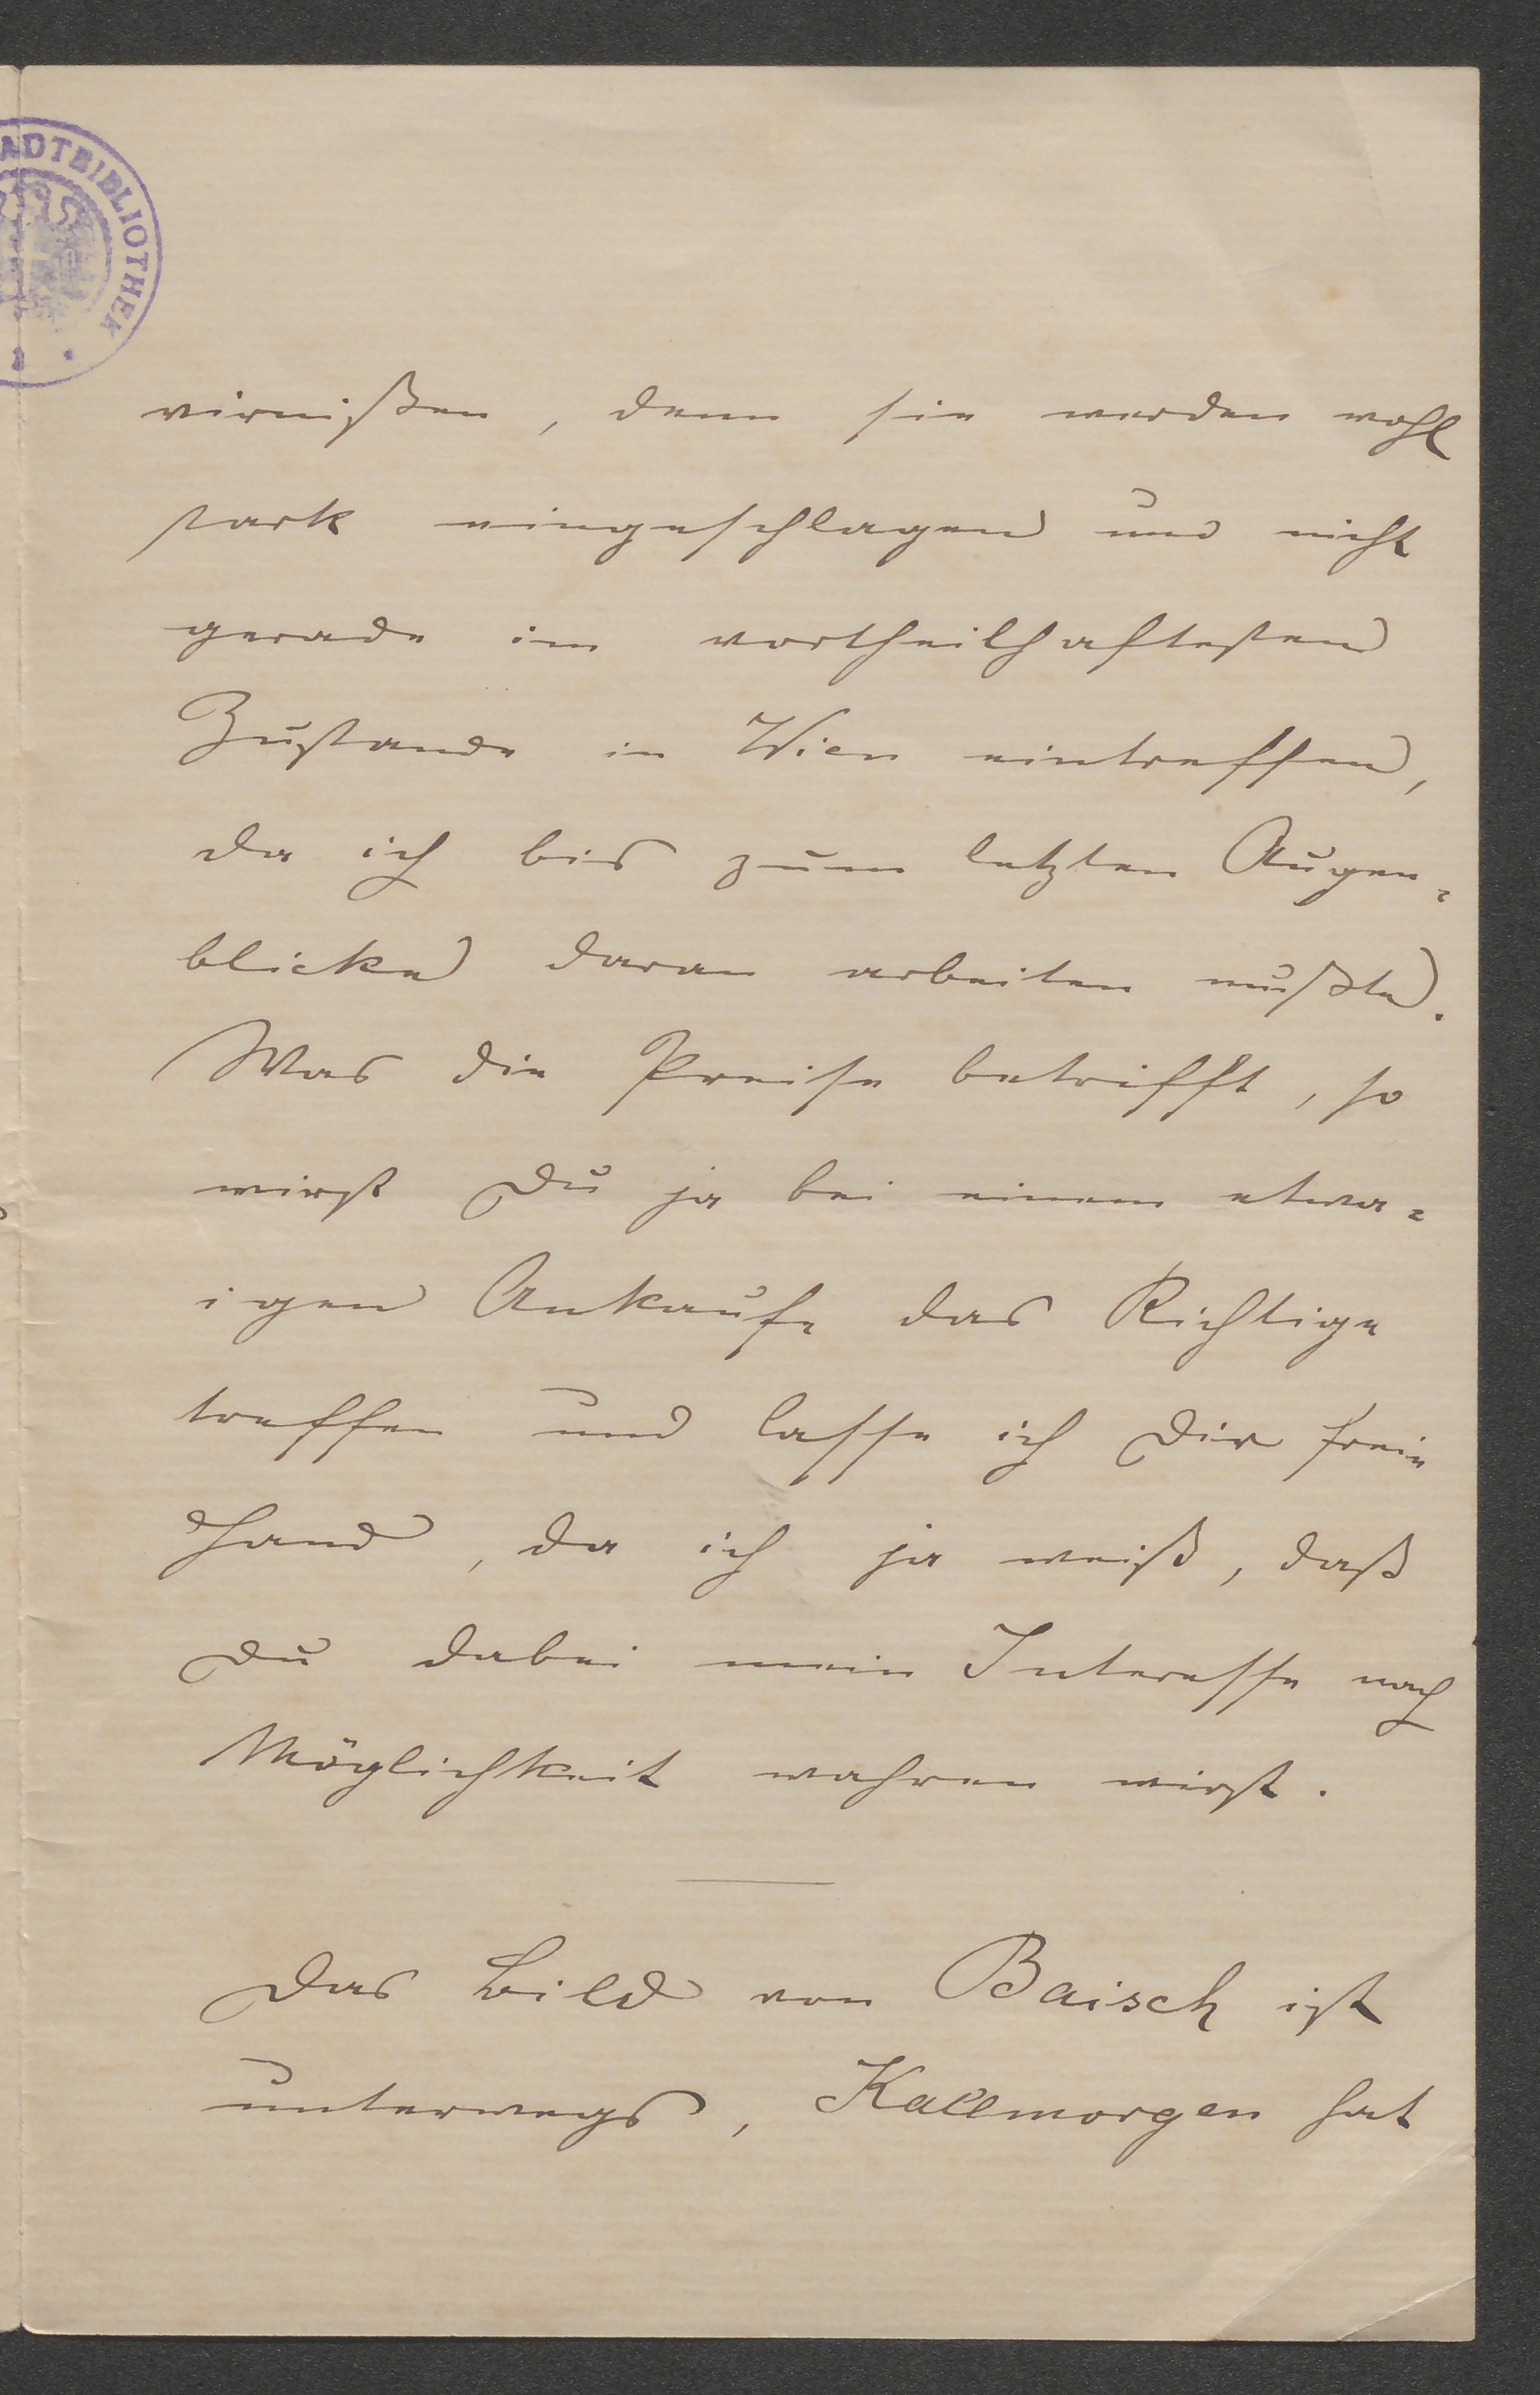 ADTBIBLIOTHEK
virnißen, denn sie werden wohl
stark eingeschlagen und nicht
gerade im vortheilhaftesten
Zustande in Wien eintreffen,
da ich bis zum letzten Augen-
blicke daran arbeiten mußte.
Was die Preise betrifft, so
wirst Du ja bei einem etwa-
igen Ankaufe das Richtige
treffen und lasse ich Dir freie
Hand, da ich ja weiß, daß
Du dabei mein Interesse nach
Möglichkeit wahren wirst.
Das Bild von Baisch ist
unterwegs, Kallmorgen hat